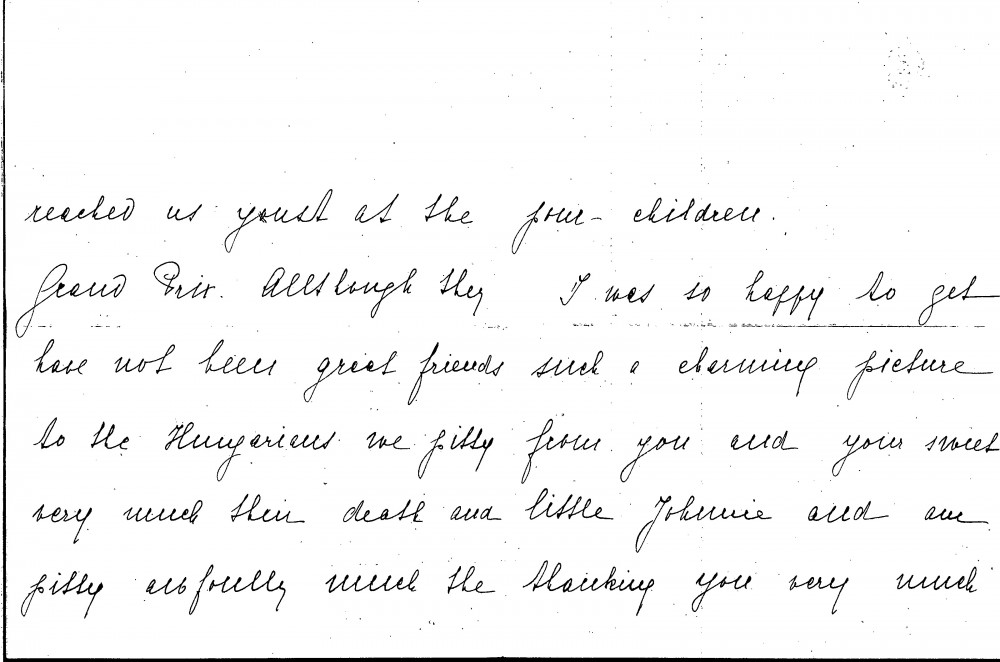 reached us youst at the
Grand Prix. Allthough they
have not been great friends
to the Hungarians we pitty
very much their death and
pitty awfoully much the
pour children.
I was so happy to get
such a charming picture
from you and your sweet
little Johnnie and am
thanking you very much